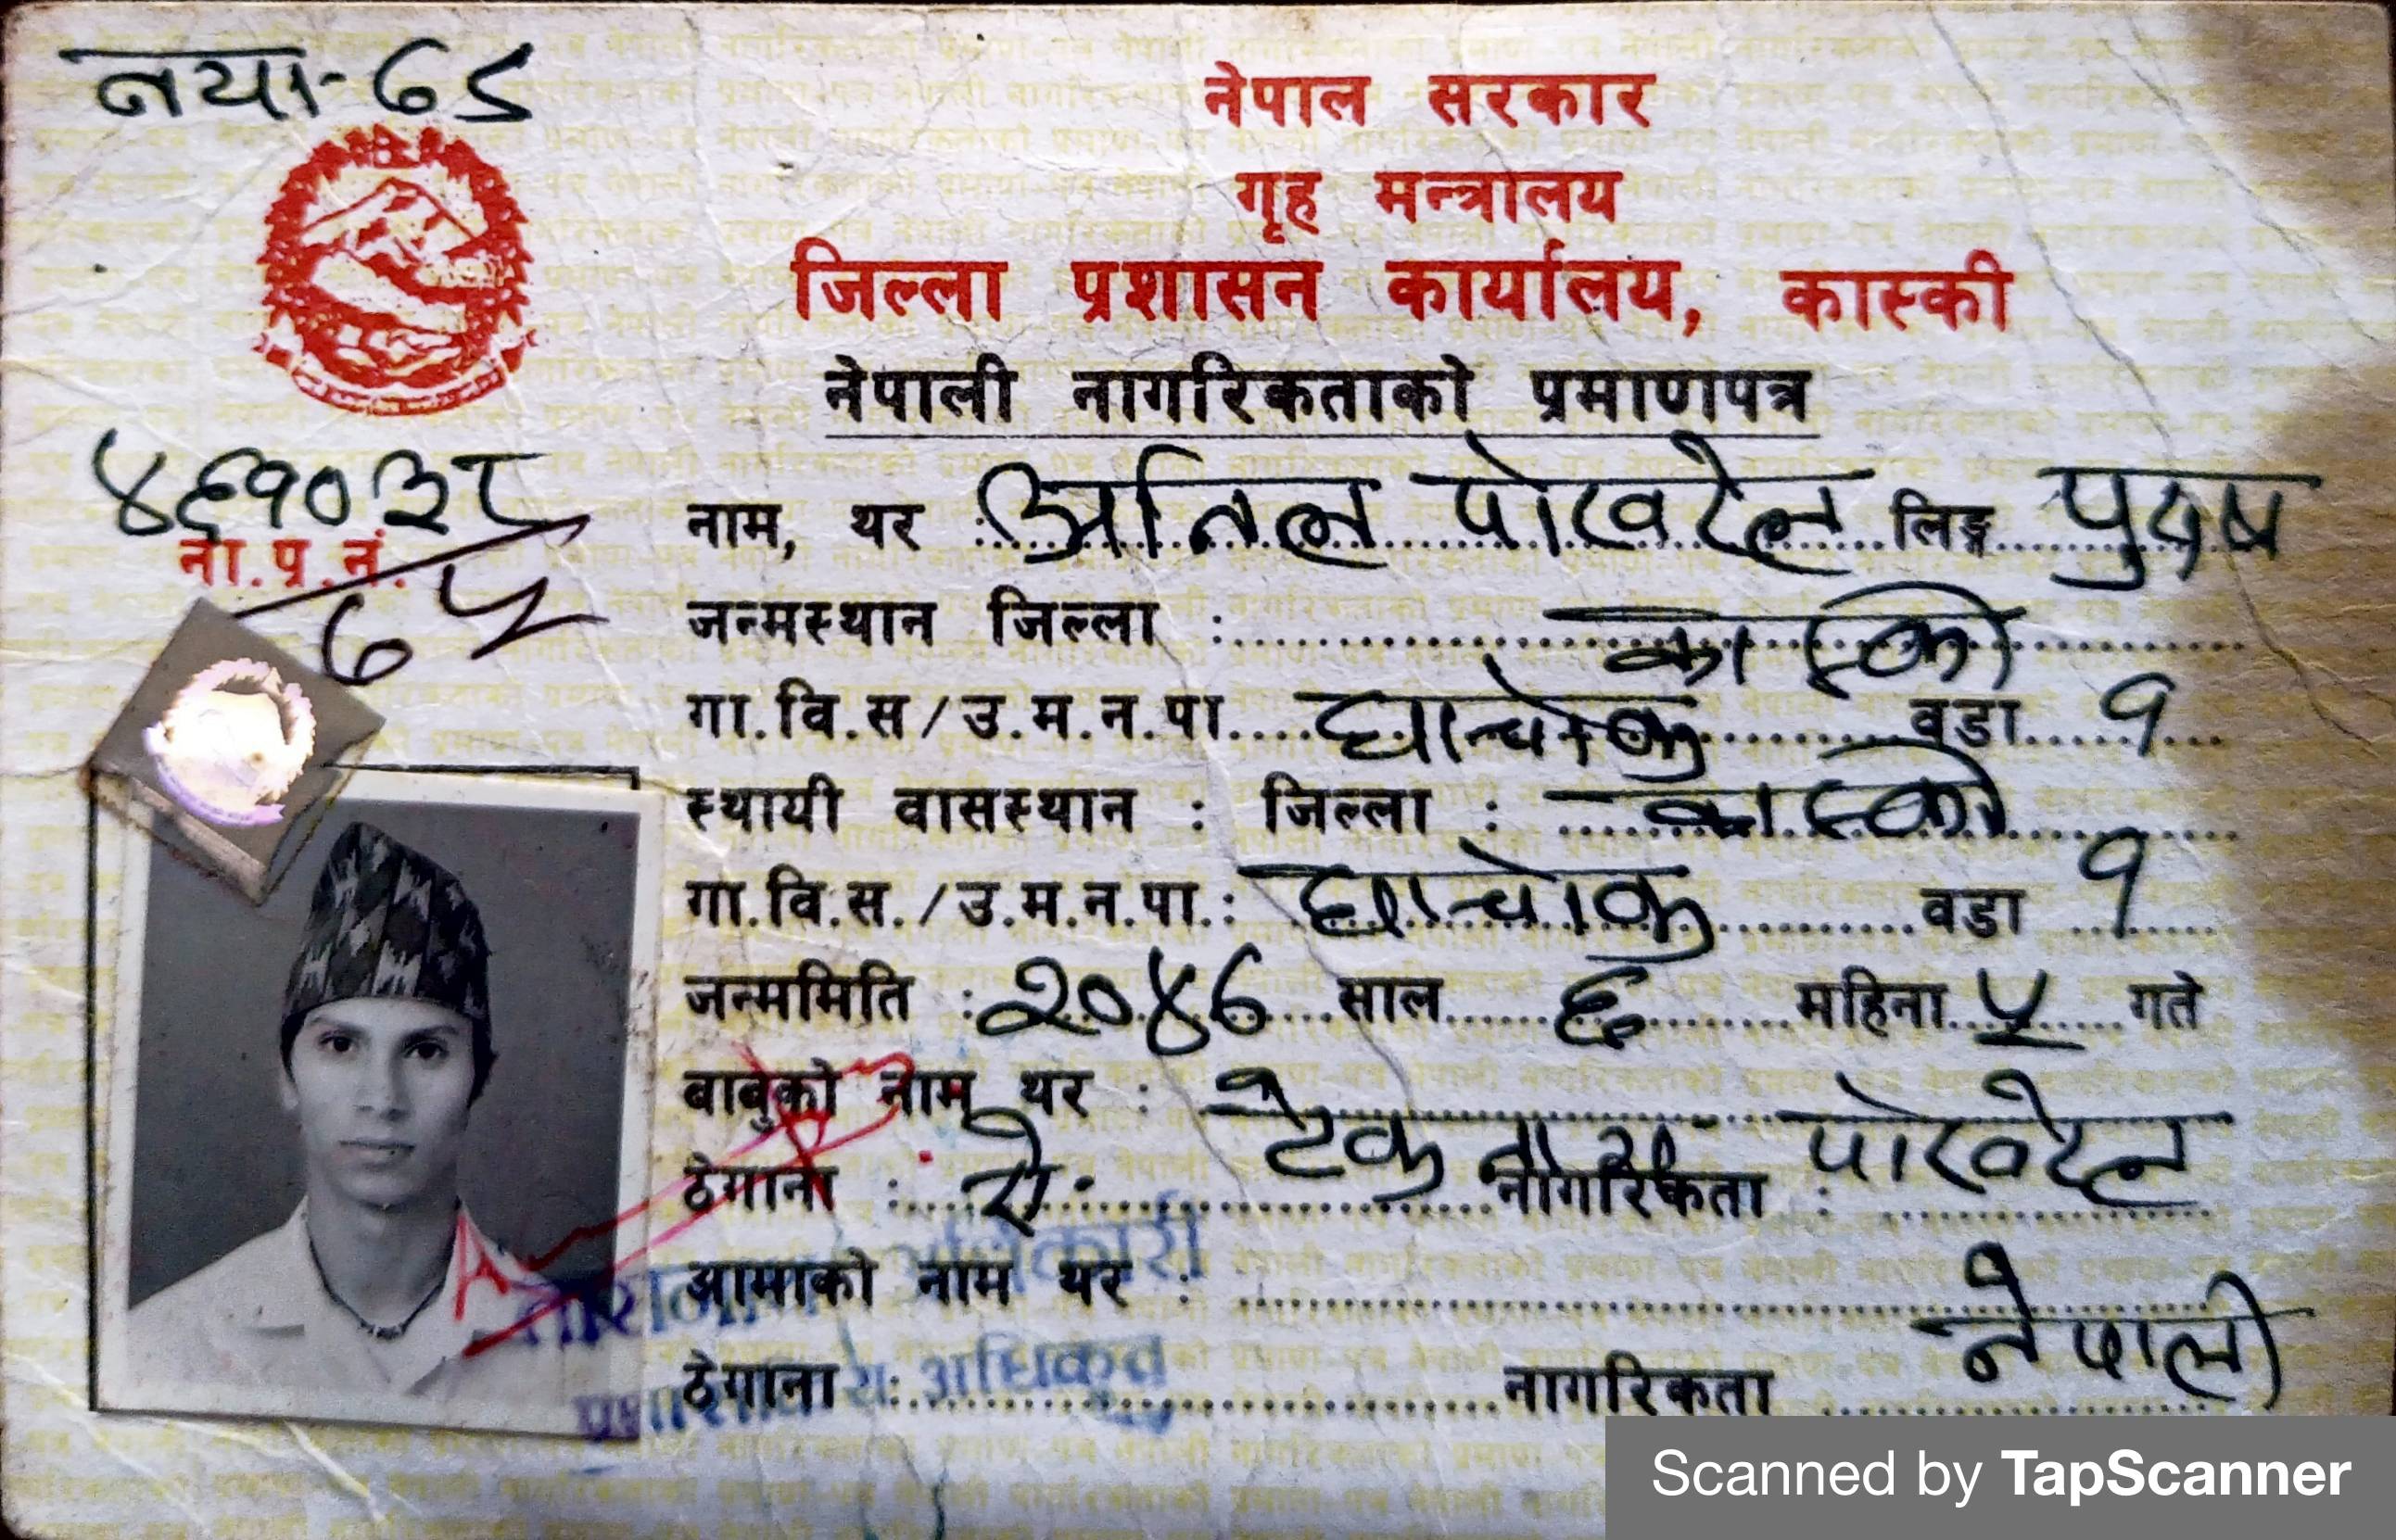 नया-७९
नेपाल सरकार
गृह मन्त्रालय
जिल्ला प्रशासन कार्यालय, कास्की
नेपाली नागरिकताको प्रमाणपत्र
४६१०३८
ना.प्र.नं.
७५
नाम, थर : अनिल पोखरेल लिङ्ग पुरुष
जन्मस्थान जिल्ला : कास्की
गा.वि.स/उ.म.न.पा घान्चोक वडा १
स्थायी वासस्थान : जिल्ला : कास्की
गा.वि.स./उ.म.न.पा.: घान्चोक वडा १
जन्ममिति : २०४७ साल ६ महिना ५ गते
बाबुको नाम थर : टेक नाथ पोखरेल
ठेगाना : ऐ. नागरिकता :
आमाको नाम थर :
ठेगाना : नागरिकता नेपाली
अधिकारी
अधिकृत
Scanned by TapScanner